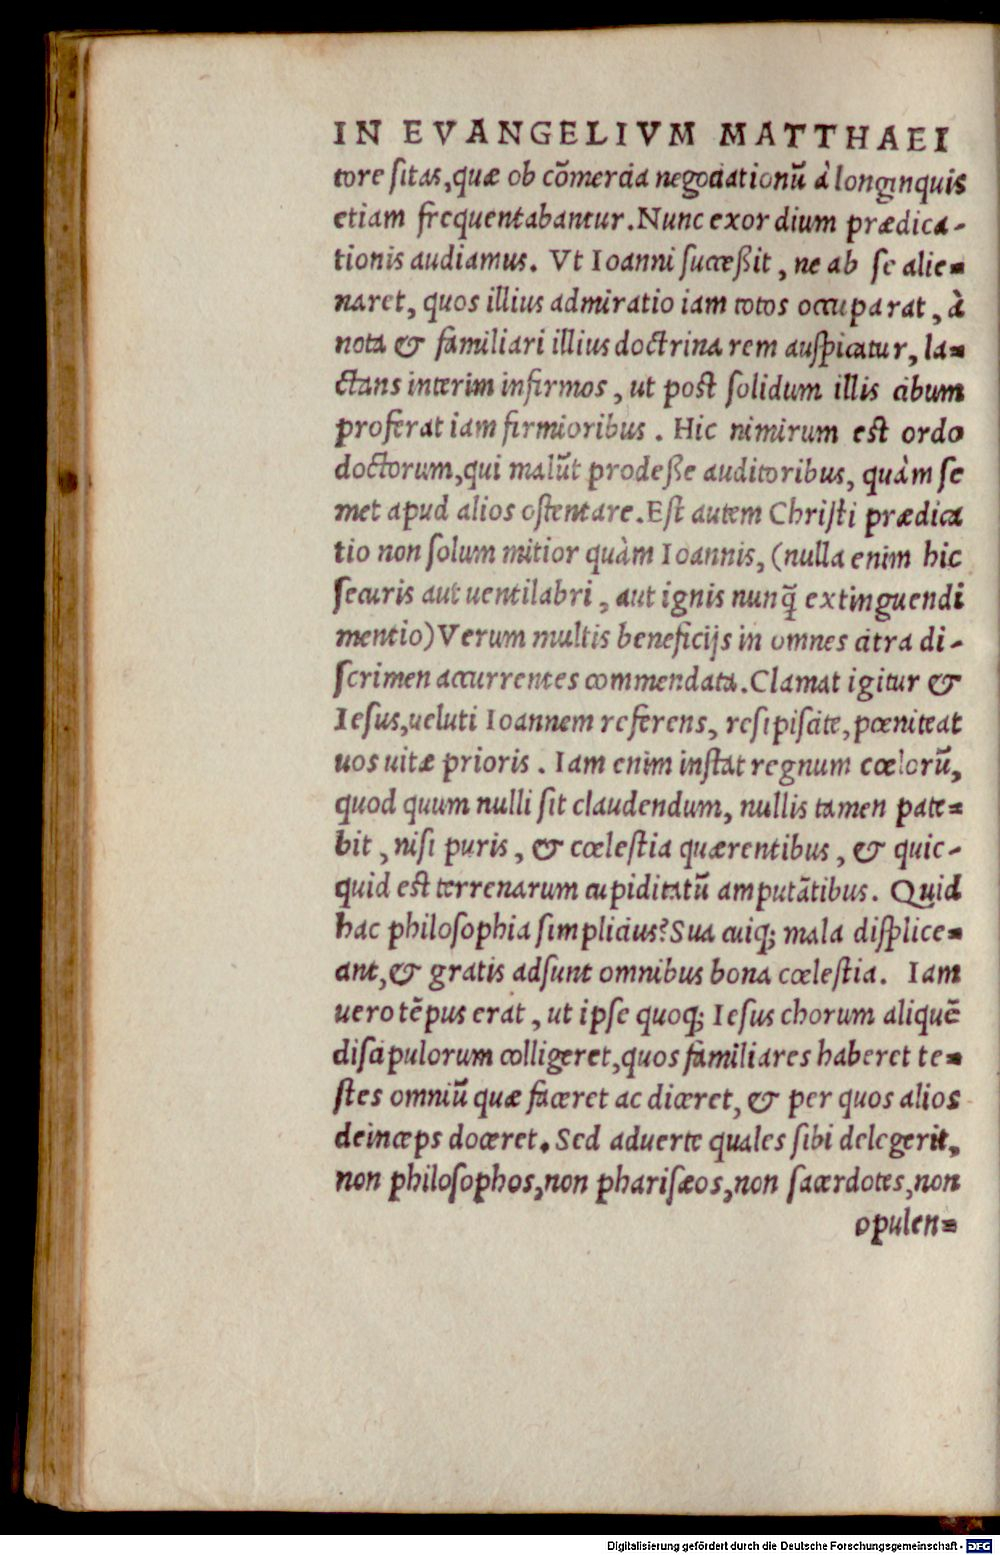 IN EVANGELIVM MATTHAEI
tore ſitas, quæ ob cōmercia negociationū à longinquis
etiam frequentabantur. Nunc exordium prædica-
tionis audiamus. Vt Ioanni ſucceßit, ne ab ſe alie-
naret, quos illius admiratio iam totos occuparat, à
nota & familiari illius doctrina rem auſpicatur, la-
ctans interim infirmos, ut poſt ſolidum illis cibum
proferat iam firmioribus. Hic nimirum eſt ordo
doctorum, qui malūt prodeße auditoribus, quàm ſe
met apud alios oſtentare. Eſt autem Chriſti prædica
tio non ſolum mitior quàm Ioannis, (nulla enim hic
ſecuris aut uentilabri, aut ignis nunq̄ extinguendi
mentio) Verum multis beneficijs in omnes citra di-
ſcrimen accurrentes commendata. Clamat igitur &
Ieſus, ueluti Ioannem referens, reſipiſcite, pœniteat
uos uitæ prioris. Iam enim inſtat regnum cœlorū,
quod quum nulli ſit claudendum, nullis tamen pate-
bit, niſi puris, & cœleſtia quærentibus, & quic-
quid eſt terrenarum cupiditatū amputātibus. Quid
hac philoſophia ſimplicius? Sua cuiq; mala diſplice-
ant, & gratis adſunt omnibus bona cœleſtia. Iam
uero tēpus erat, ut ipſe quoq; Ieſus chorum aliquē
diſcipulorum colligeret, quos familiares haberet te-
ſtes omniū quæ faceret ac diceret, & per quos alios
deinceps doceret. Sed aduerte quales ſibi delegerit,
non philoſophos, non phariſæos, non ſacerdotes, non
opulen-
Digitalisierung gefördert durch die Deutsche Forschungsgemeinschaft - DFG